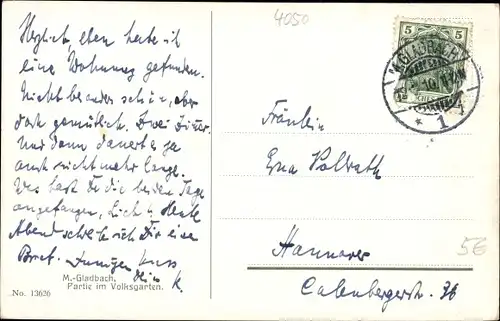 4050
Herzlieb, eben habe ich
eine Wohnung gefunden.
Nicht besonders schön, aber
doch gemütlich. Zwei Zimmer.
Und dann dauert es ja
auch nicht mehr lange.
Was hast Du die beiden Tage
angefangen, Heute
Abend schreibe ich Dir eine
Brief. Innigen Kuss
Dein K.
M.-Gladbach.
Partie im Volksgarten.
No. 13626
5
5
M.GLADBACH
* 1
Fräulein
Erna Volrath
Hannover
Calenbergerstr. 36
5€